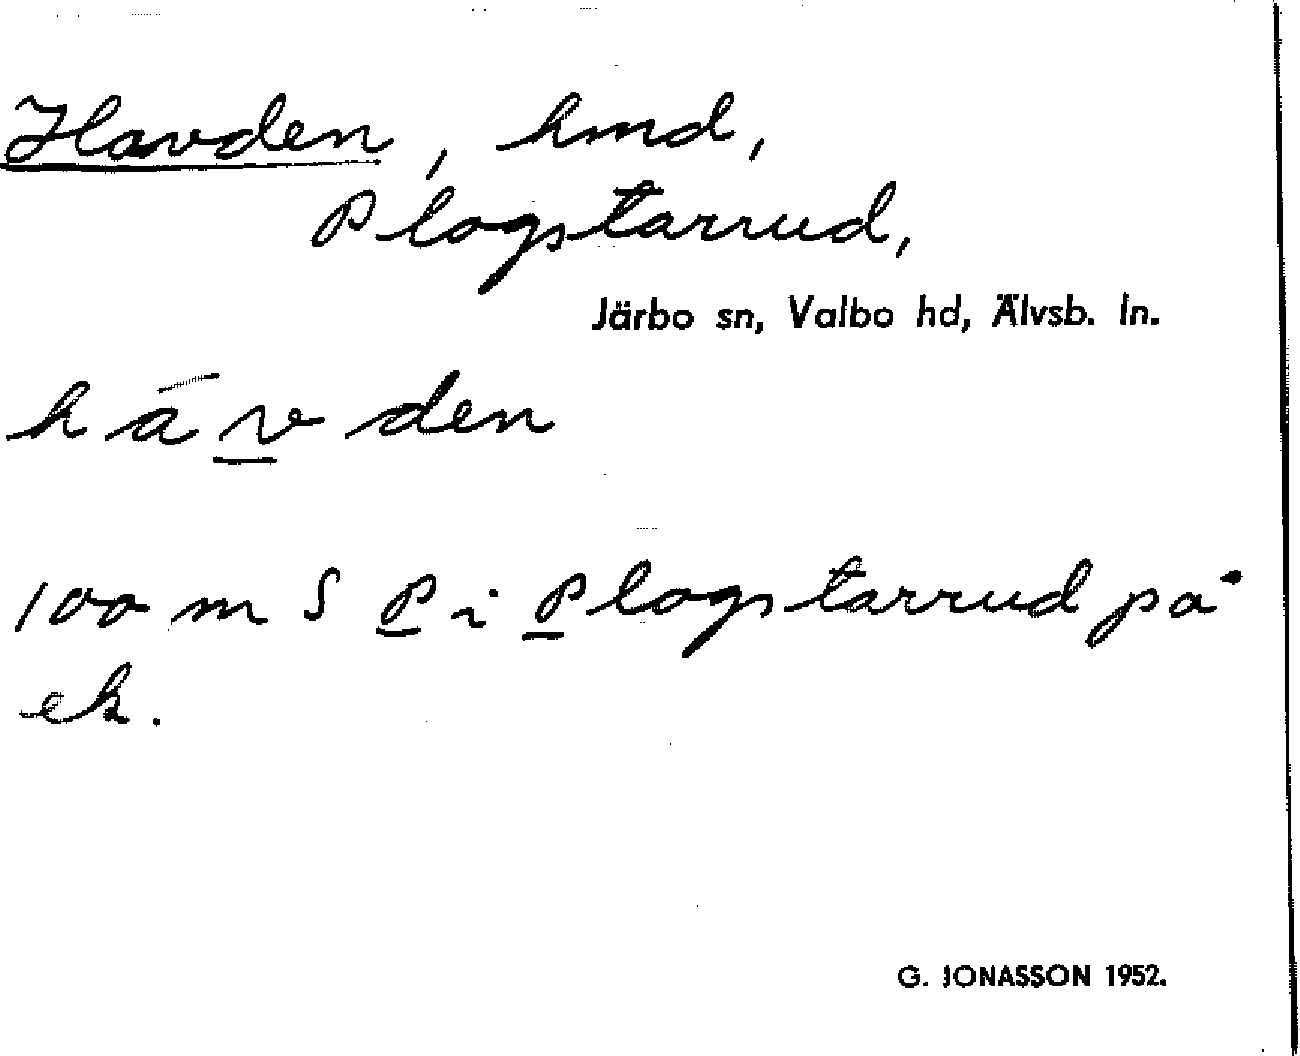 Havden, hmd,
Plogstarrud,
Järbo sn, Valbo hd, Älvsb. ln.
hāvden
100 m S P i Plogstarrud på
ek.
G. JONASSON 1952.